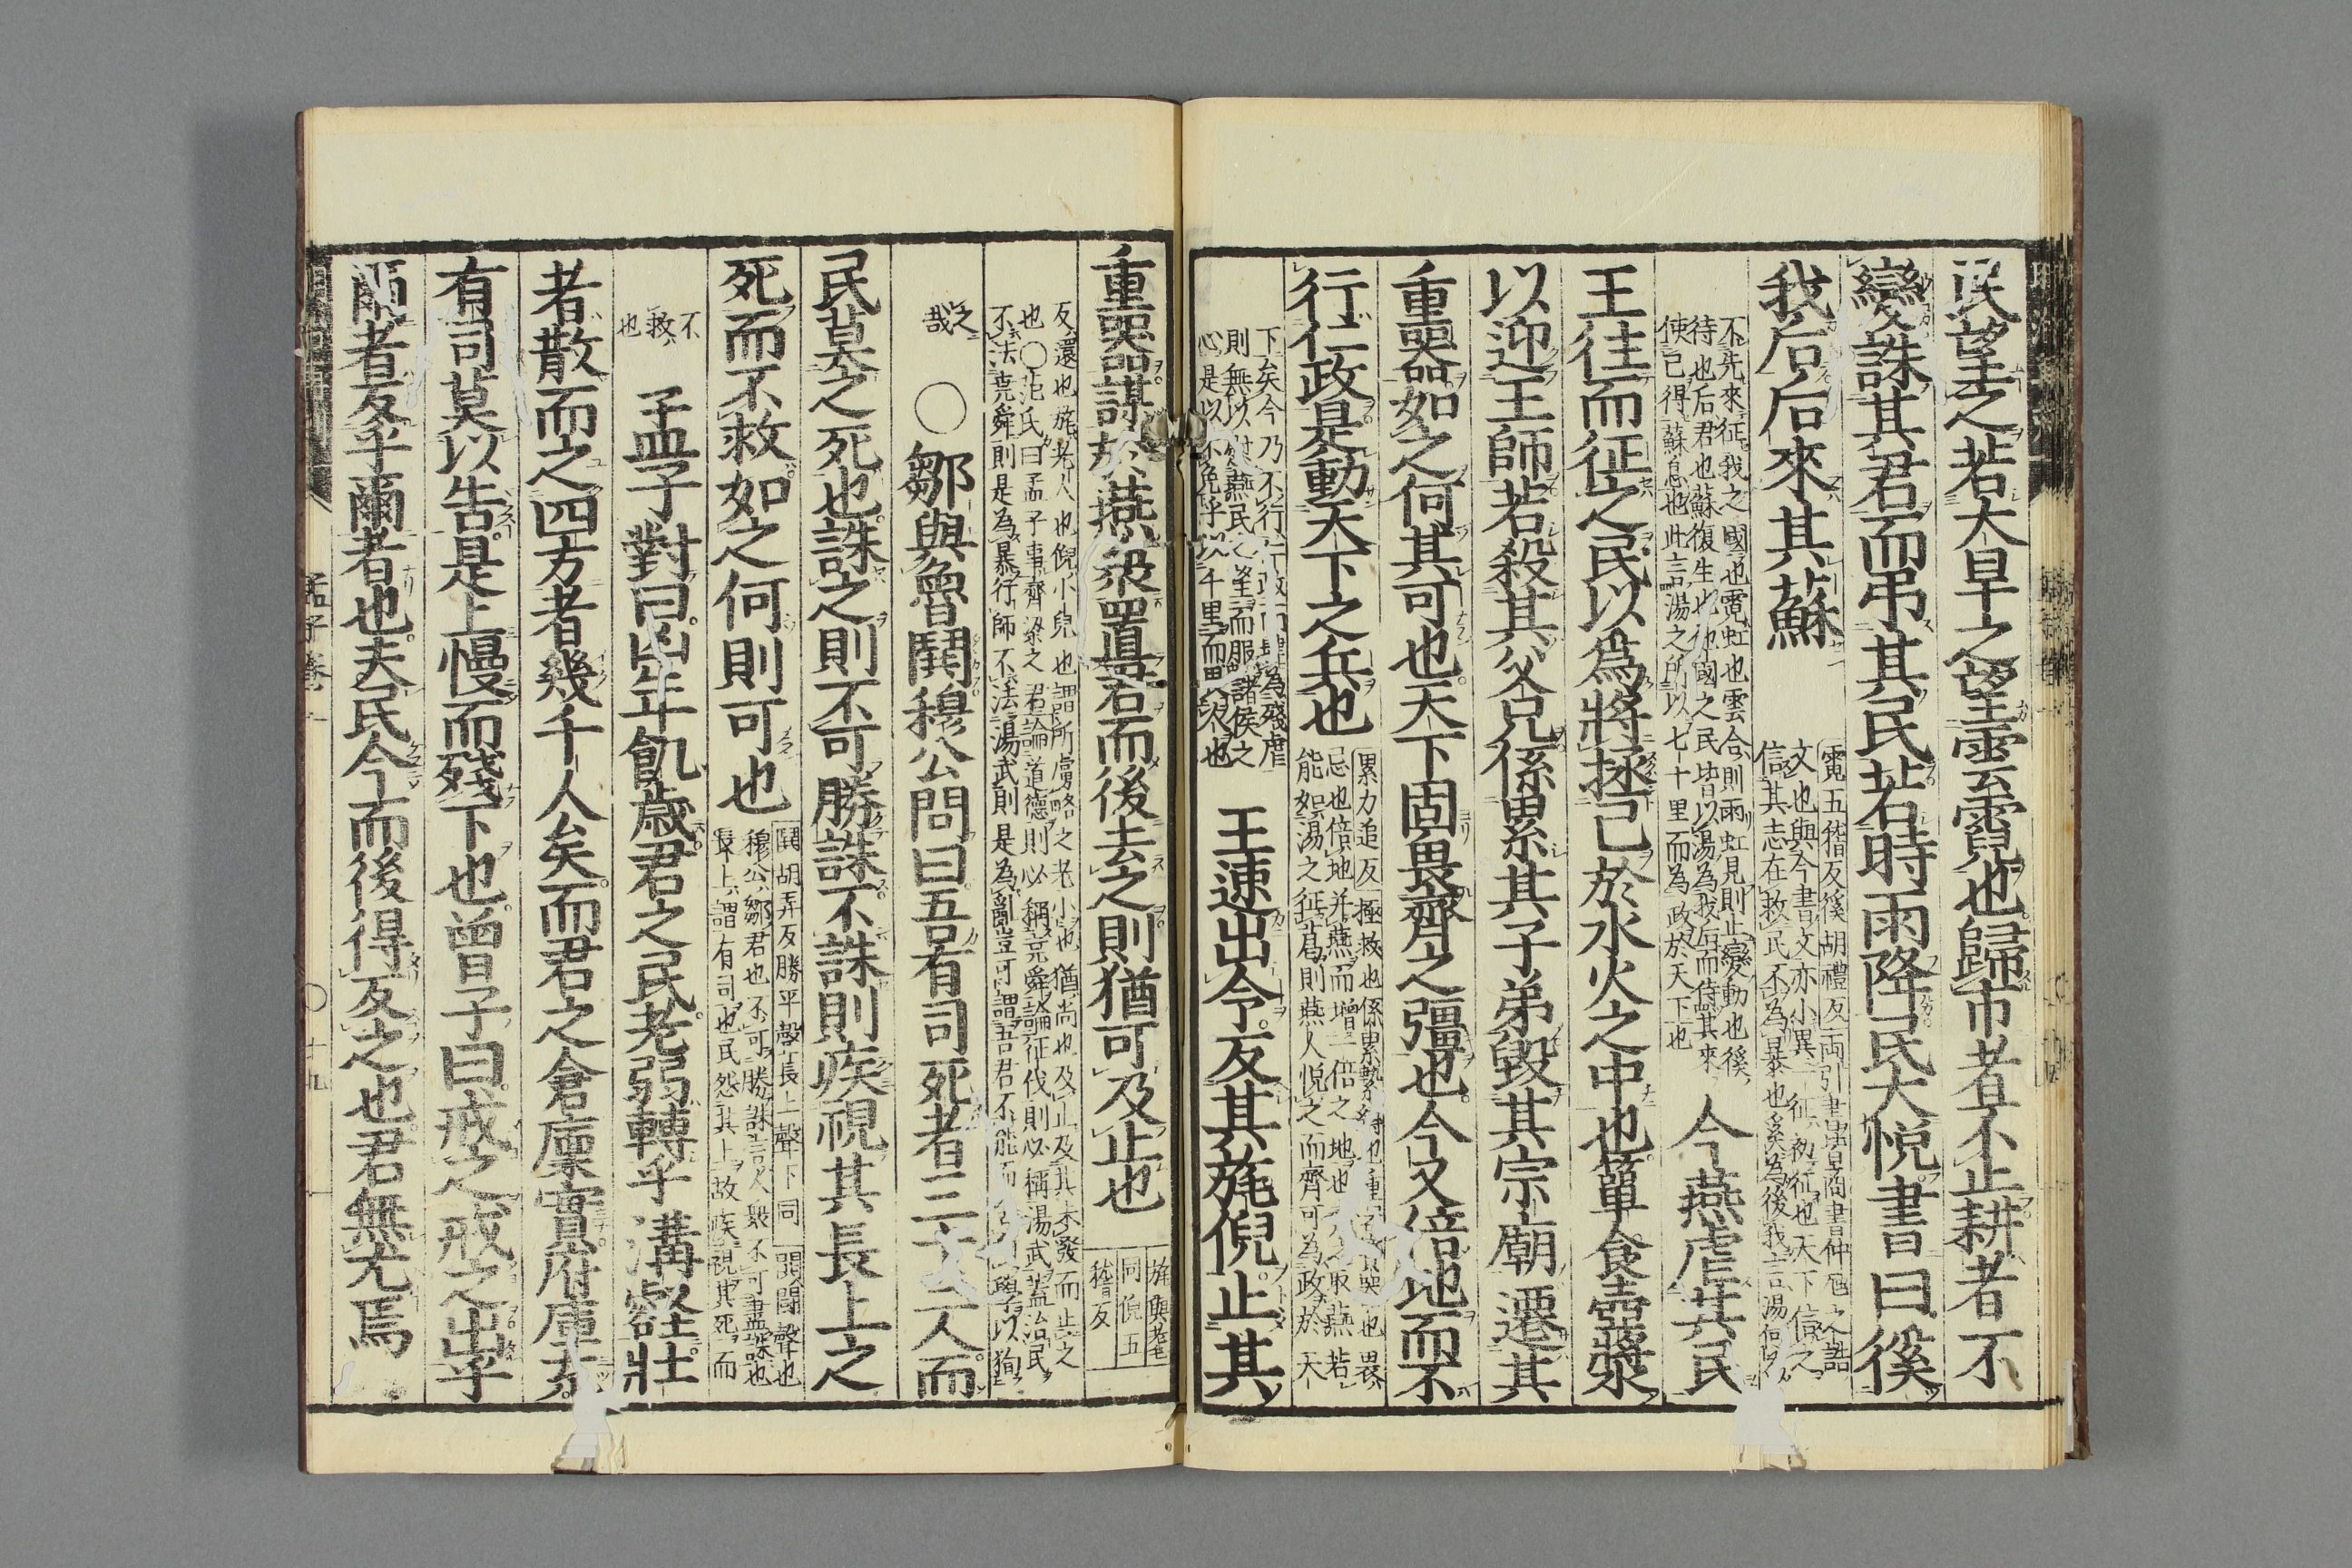 民望之若大旱之望雲霓也歸市者不止耕者不
變誅其君而弔其民若時雨降民大悅書曰徯
我后后來其蘇
霓五稽反徯胡禮反兩引書皆商書仲虺之誥
文也與今書文亦小異一征初征也天下信之
信其志在救民不為暴也奚為後我言湯何為
不先來征我之國也霓虹也雲合則雨虹見則止變動也徯
待也后君也蘇復生也他國之民皆以湯為我后而待其來
使己得蘇息也此言湯之所以七十里而為政於天下也
今燕虐其民
王往而征之民以爲將拯己於水火之中也簞食壺漿
以迎王師若殺其父兄係累其子弟毀其宗廟遷其
重器如之何其可也天下固畏齊之彊也今又倍地而不
行仁政是動天下之兵也
累力追反拯救也係累縶縛也重器寶器也畏
忌也倍地并燕而增一倍之地也齊之取燕若
能如湯之征葛則燕人悅之而齊可為政於天
下矣今乃不行仁政而肆為殘虐
則無以慰燕民之望而服諸侯之
心是以不免乎以千里而畏人也
王速出令反其旄倪止其
重器謀於燕衆置君而後去之則猶可及止也
旄與耄
同倪五
稽反
反還也旄老人也倪小兒也謂所虜略之老小也猶尚也及止及其未發而止之
也○范氏曰孟子事齊梁之君論道德則必稱堯舜論征伐則必稱湯武蓋治民
不法堯舜則是為暴行師不法湯武則是為亂豈可謂吾君不能而舍所學以徇
之
哉
○鄒與魯鬨穆公問曰吾有司死者三十三人而
民莫之死也誅之則不可勝誅不誅則疾視其長上之
死而不救如之何則可也
鬨胡弄反勝平聲長上聲下同 鬨鬭聲也
穆公鄒君也不可勝誅言人衆不可盡誅也
長上謂有司也民怨其上故疾視其死而
不
救
也
孟子對曰凶年飢歲君之民老弱轉乎溝壑壯
者散而之四方者幾千人矣而君之倉廩實府庫充
有司莫以告是上慢而殘下也曾子曰戒之戒之出乎
爾者反乎爾者也夫民今而後得反之也君無尤焉
孟子卷一
○十九